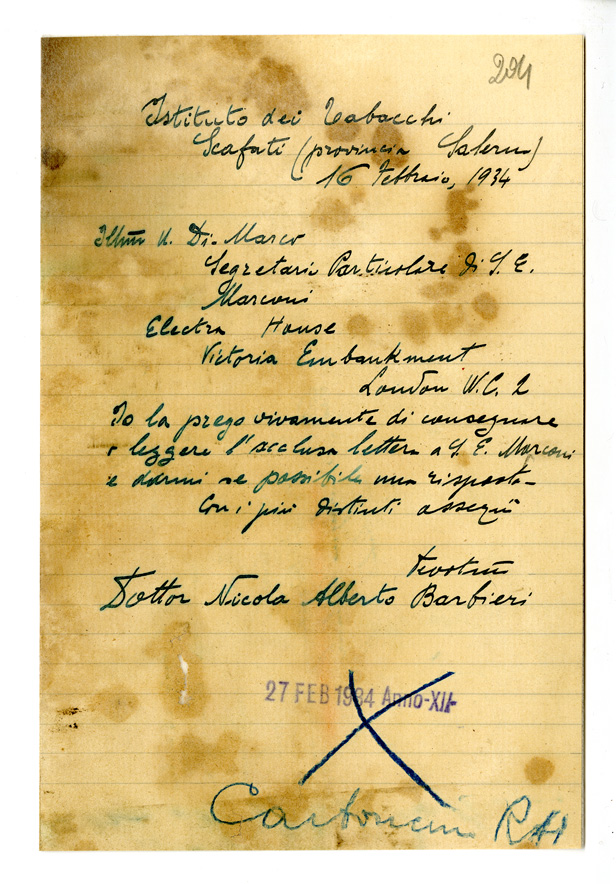 294
Istituto dei Tabacchi
Scafati (provincia Salerno)
16 Febbraio, 1934
Illmo U. Di Marco
Segretario Particolare di S. E.
Marconi
Electra House
Victoria Embankment
London W.C. 2
Io la prego vivamente di consegnare
e leggere l'acclusa lettera a S. E. Marconi
e darmi se possibile una risposta-
Con i più distinti ossequi
Dottor Nicola Alberto Barbieri
27 FEB 1934 Anno-XII-